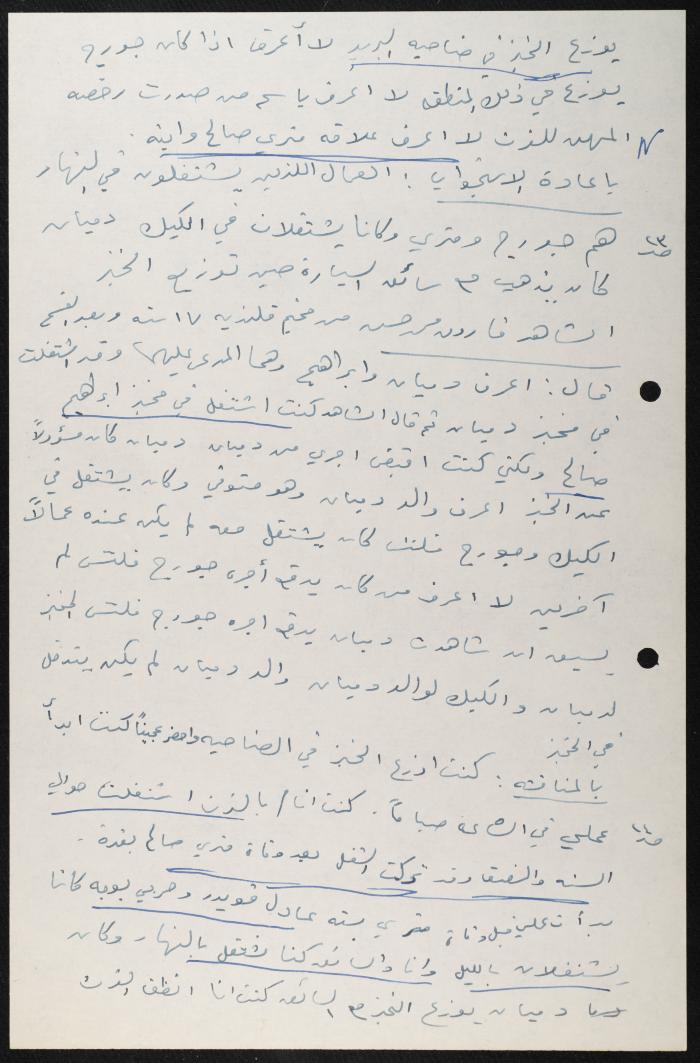 يوزع الخبز في ضاحيه البريد لا أعرف اذا كان جورج
يوزع في ذلك المنطقه لا اعرف باسم من صدرت رخصه
المهن للفرن لا اعرف علاقه متري صالح وابنه .
باعادة الاستجواب : العمال اللذين يشتغلون في النهار
ص٢٣ هم جورج ومتري وكانا يشتغلان في الكيك دميان
كان يذهب مع سائق السيارة حين توزيع الخبز
الشاهد فاروق من مخيم قلنديه ١٧ سنه وبعد القسم
قال : اعرف دميان وابراهيم وهما المدعى عليهما وقد اشتغلت
في مخبز دميان ثم قال الشاهد كنت اشتغل في مخبز ابراهيم
صالح ولكني كنت اقبض اجري من دميان دميان كان مسؤولاً
عن الخبز اعرف والد دميان وهو متوفي وكان يشتغل في
الكيك وجورج فلتس كان يشتغل معه لم يكن عنده عمالاً
آخرين لا اعرف من كان يدفع أجره جورج فلتس لم
يسبق ان شاهدت دميان يدفع اجره جورج فلتس المخبز
لدميان والكيك لوالد دميان والد دميان لم يكن يتدخل
في الخبز
بالمناقشه : كنت اوزع الخبز في الضاحيه واحضر عجيناً كنت ابدأ
عملي في الساعة صباحاً . كنت انا بالفرن اشتغلت حوالي
السنه والنصف وقد تركت الشغل بعد وفاة متري صالح بفترة .
بدأت عملي قبل وفاة متري بسنه عادل قويدر وحربي كانا
يشتغلان بالليل وانا والسائق كنا نشتغل بالنهار وكان
دميان يوزع الخبز مع السائق كنت انا انظف الفرن